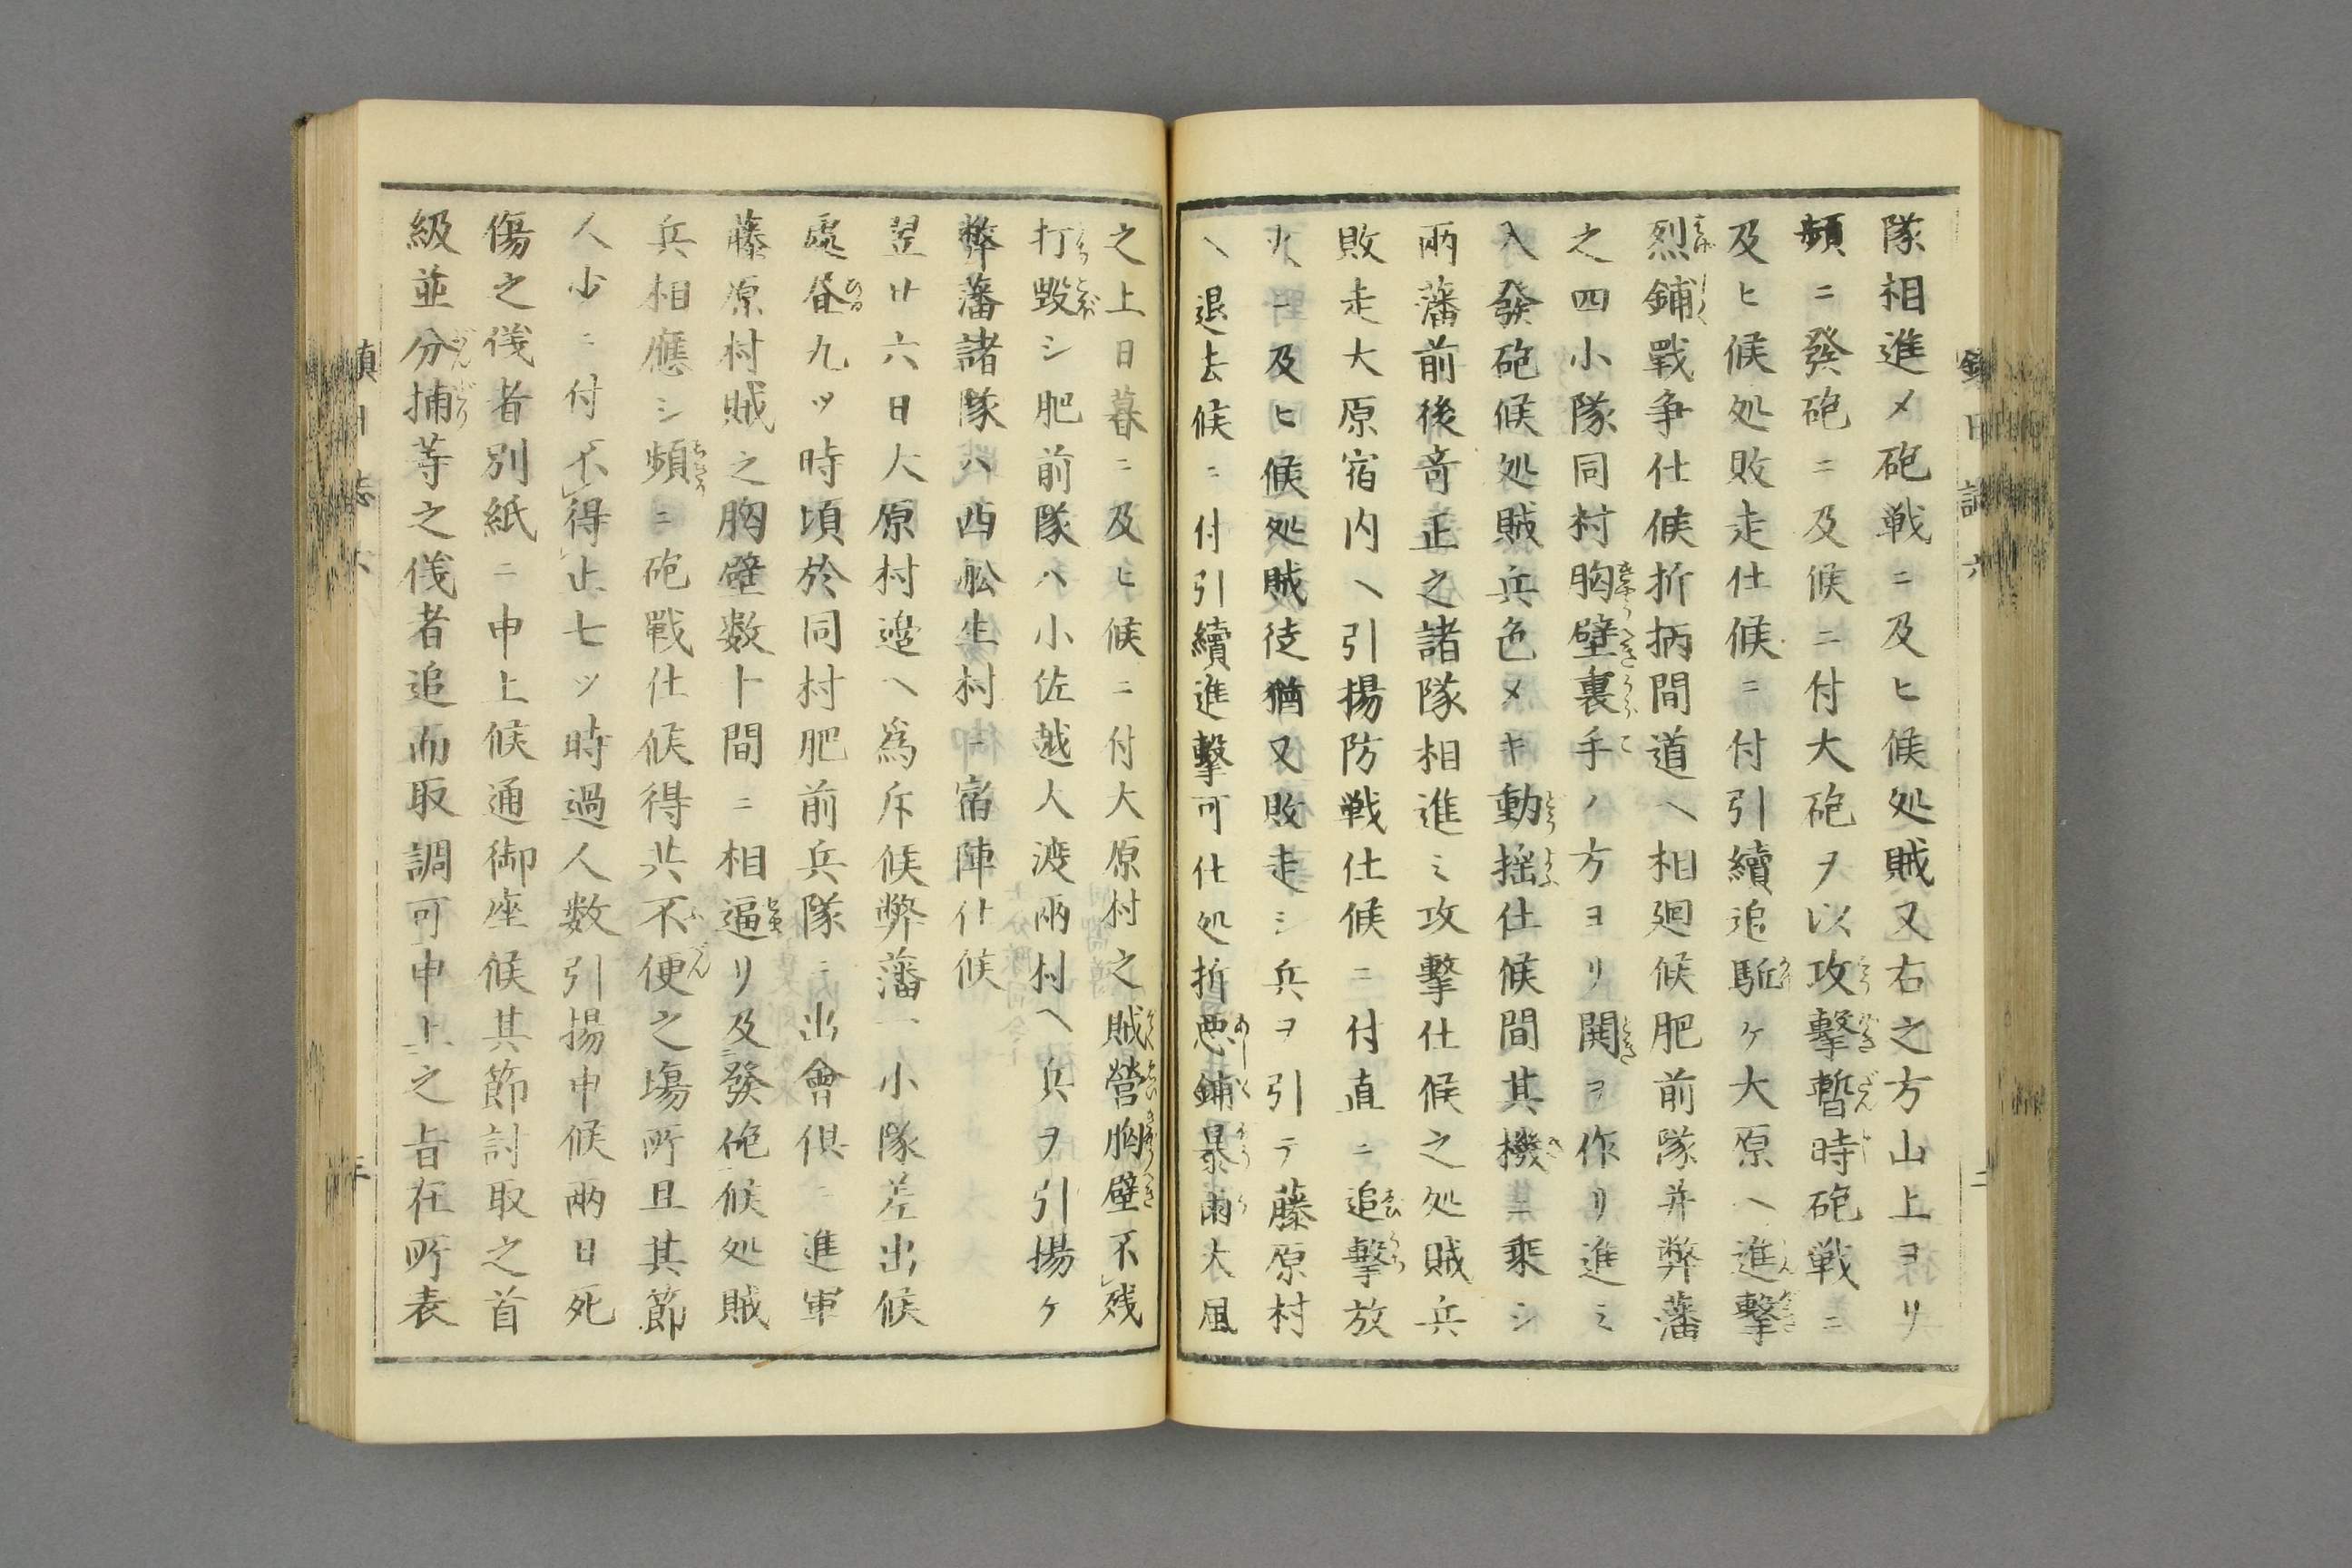 隊相進メ砲戦ニ及ヒ候処賊又右之方山上ヨリ
頻ニ發砲ニ及候ニ付大砲ヲ以攻擊暫時砲戦ニ
及ヒ候処敗走仕候ニ付引續追駈ケ大原ヘ進擊
烈鋪戰争仕候折柄間道ヘ相廻候肥前隊并弊藩
之四小隊同村胸壁裏手ノ方ヨリ鬨ヲ作リ進ミ
入發砲候処賊兵色メキ動揺仕候間其機ニ乗シ
兩藩前後奇正之諸隊相進ミ攻擊仕候之処賊兵
敗走大原宿内ヘ引揚防戦仕候ニ付直ニ追擊放
火ニ及ヒ候処賊徒猶又敗走シ兵ヲ引テ藤原村
ヘ退去候ニ付引續進擊可仕処折悪鋪暴雨大風
之上日暮ニ及ヒ候ニ付大原村之賊營胸壁不残
打毀シ肥前隊ハ小佐越人渡兩村ヘ兵ヲ引揚ケ
弊藩諸隊ハ西舩生村ニ宿陣仕候
翌廿六日大原村邉ヘ爲斥候弊藩一小隊差出候
處昼九ツ時頃於同村肥前兵隊ニ出會倶ニ進軍
藤原村賊之胸壁数十間ニ相逼リ及發砲候処賊
兵相應シ頻ニ砲戰仕候得共不便之場所且其節
人少ニ付不得止七ツ時過人数引揚申候兩日死
傷之儀者別紙ニ申上候通御座候其節討取之首
級並分捕等之儀者追而取調可申上之旨在所表